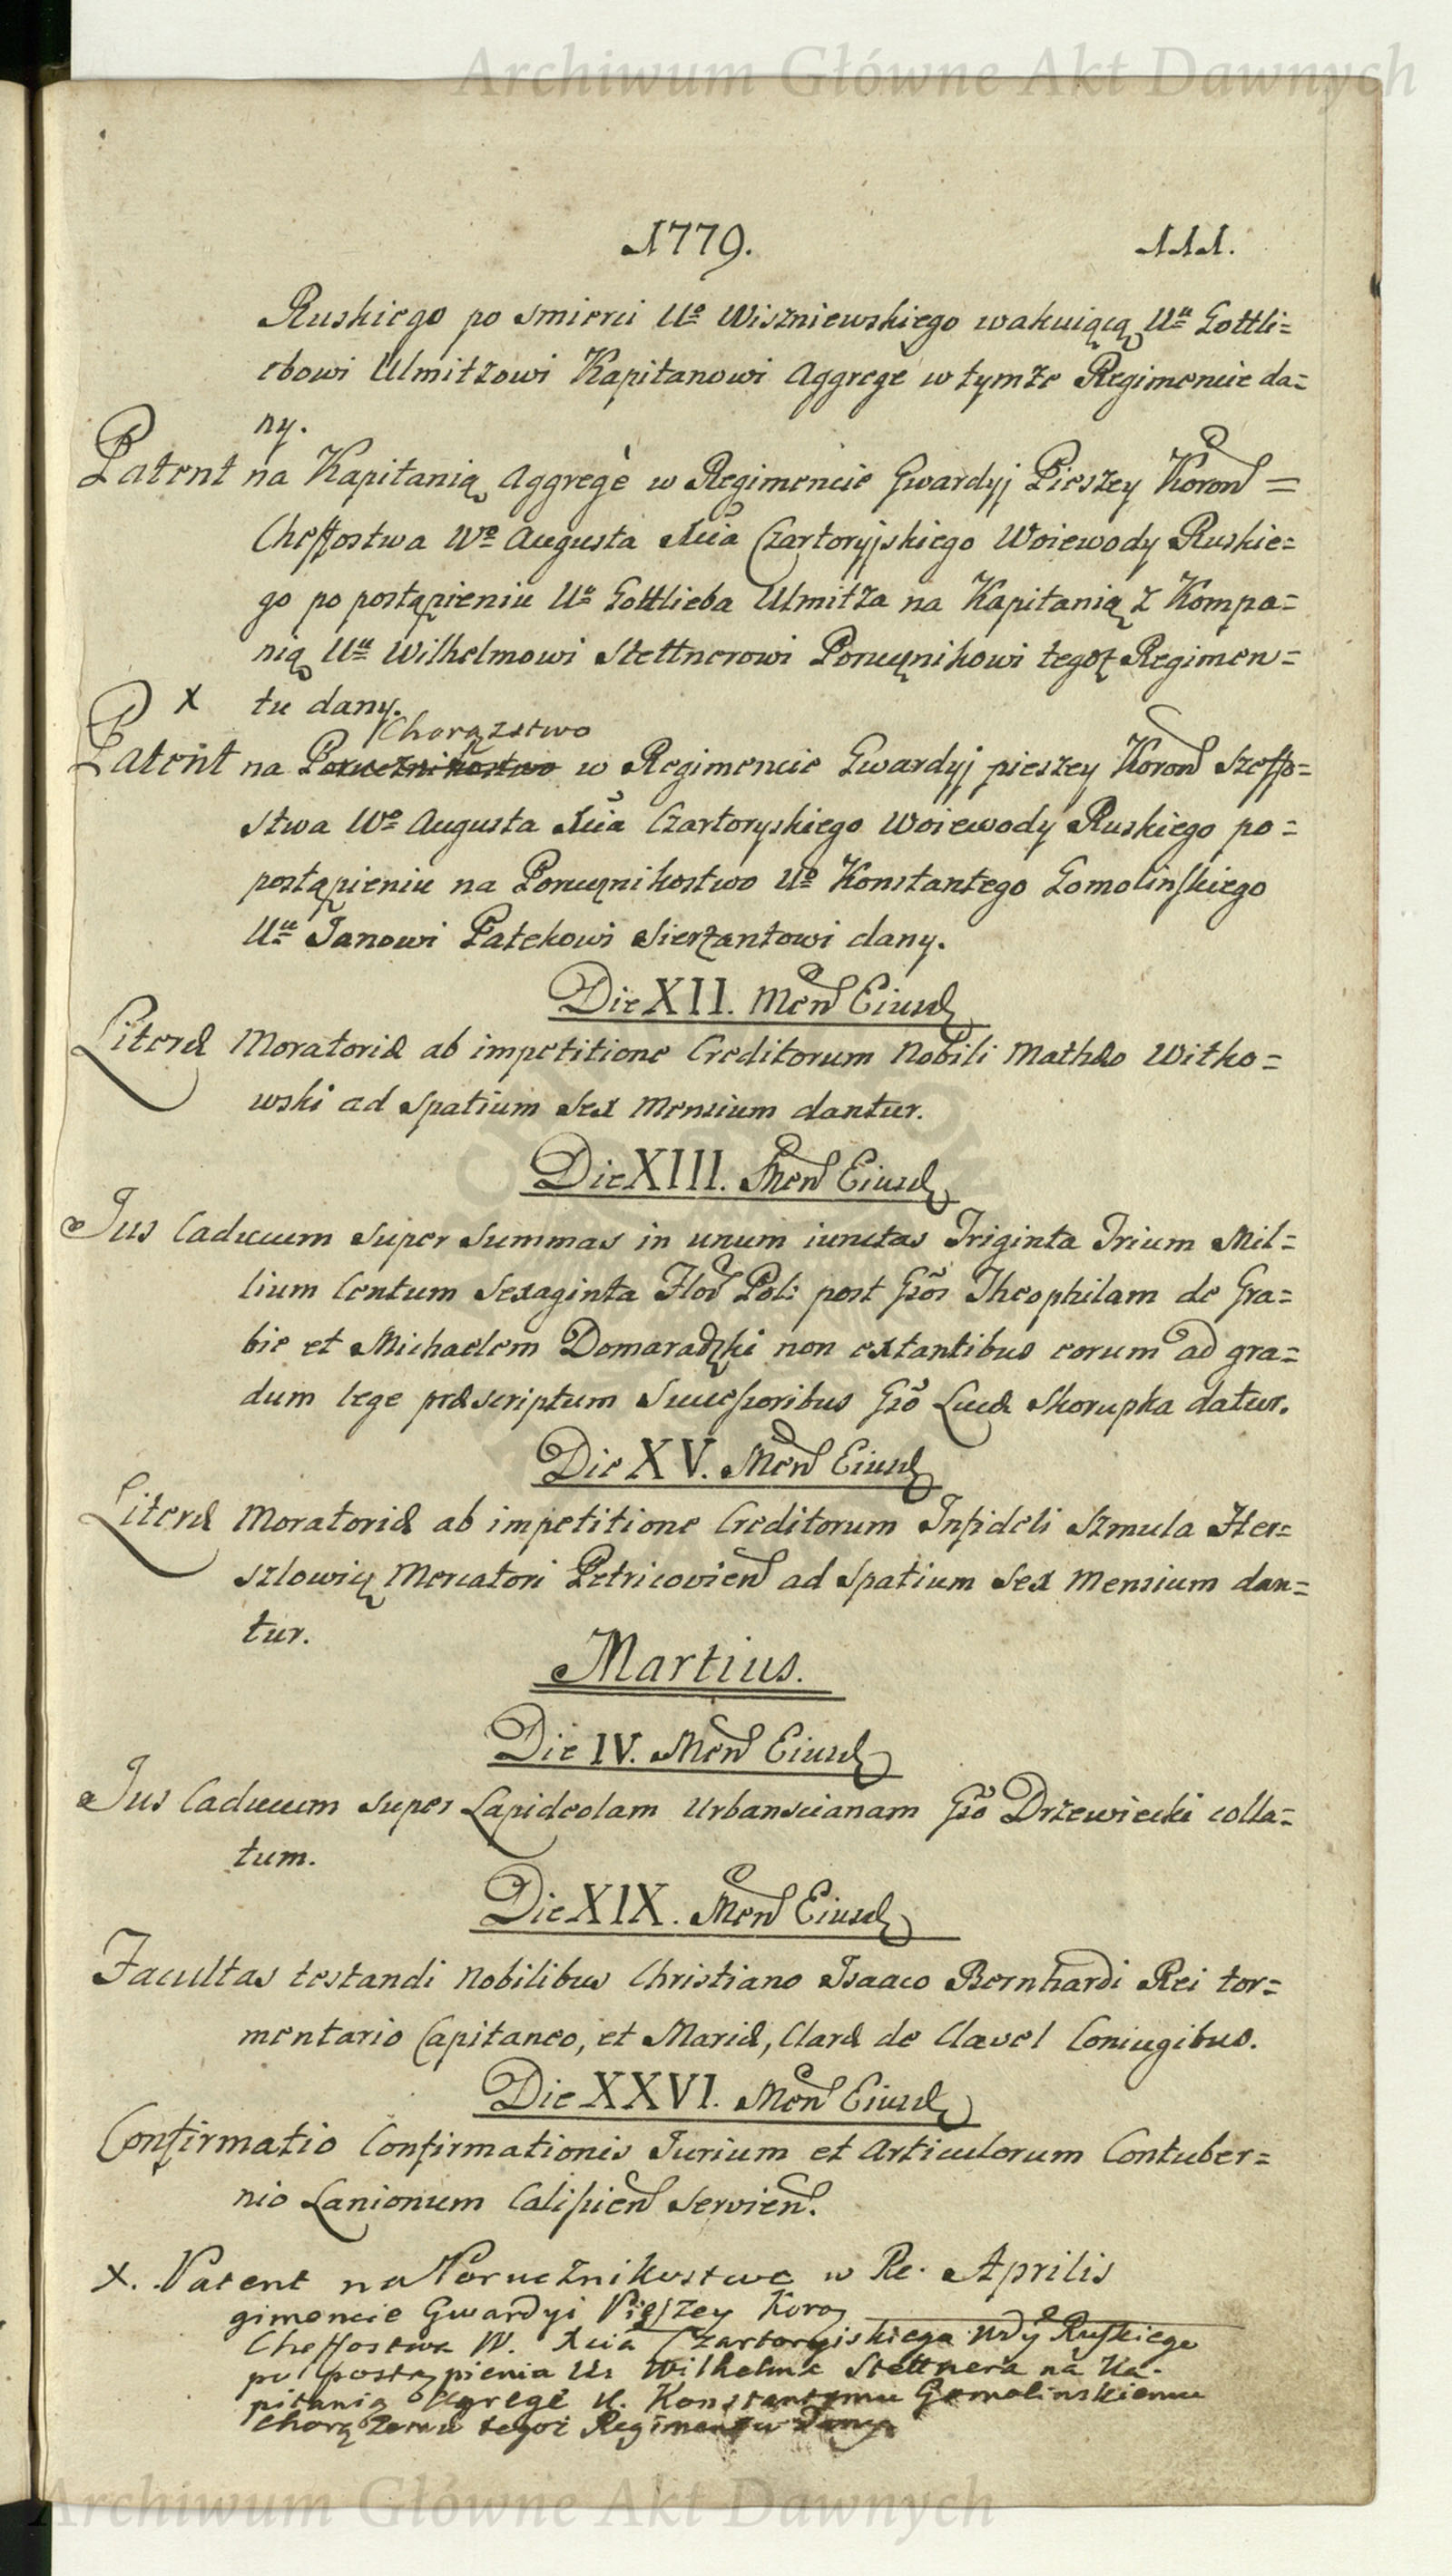 Archiwum Główne Akt Dawnych
1779. 111.
Ruskiego po smierci Uo Wiszniewskiego wakuiącą Uu Gottli=
ebowi Ulmitzowi Kapitanowi Aggregé w tymże Regimencie da=
ny.
Patent na Kapitanią Aggregè w Regimencie Gwardyj Pieszey Koron=
Cheffostwa Wo Augusta Xcia Czartoryjskiego Woiewody Ruskie=
go po postąpieniu Uo Gottlieba Ulmitza na Kapitanią z Kompa=
nią Uu Wilhelmowi Stettnerowi Porucznikowi tegoż Regimen=
X tu dany.
Chorążstwo
Patent na Porucznikostwo w Regimencie Gwardyj pieszey Koron Szeffo=
stwa Wo Augusta Xcia Czartoryskiego Woiewody Ruskiego po=
postąpieniu na Porucznikostwo Uo Konstantego Gomolinskiego
Uu Janowi Patekowi Sierżantowi dany.
Die XII. Men Eiusd
Literæ Moratoriæ ab impetitione Creditorum Nobili Mathæo Witko=
wski ad Spatium Sex Mensium dantur.
Die XIII. Men Eiusd
Jus Caducum Super Summas in unum iunctas Triginta Trium Mil=
lium Centum Sexaginta Flor Pol: post Gsos Theophilam de Gra=
bie et Michaelem Domaradzki non extantibus eorum ad gra=
dum lege præscriptum Successoribus Gso Lucæ Skorupka datur.
Die XV. Men Eiusd
Literæ Moratoriæ ab impetitione Creditorum Infideli Szmula Her=
szlowicz Mercatori Petricovien ad Spatium Sex Mensium dan=
tur.
Martius.
Die IV. Men Eiusd
Jus Caducum Super Lapideolam Urbanscianam Gso Drzewiecki colla=
tum.
Die XIX. Men Eiusd
Facultas testandi Nobilibus Christiano Isaaco Bernhardi Rei tor=
mentario Capitaneo, et Mariæ, Claræ de Clavel Coniugibus.
Die XXVI. Men Eiusd
Confirmatio Confirmationis Jurium et Articulorum Contuber=
nio Lanionum Calissien Servien.
X. Patent na Porucznikostwo w Re. Aprilis
gimencie Gwardyi Pieszey Koro
Cheffostwa W. Xcia Czartoryiskiego Wdy Ruskiego
po postąpienia Ur Wilhelma Stettnera na Ka-
pitanią Agregé U. Konstantemu Gomolinskiemu
Chorążemu tegoż Regimentu dany
Archiwum Główne Akt Dawnych